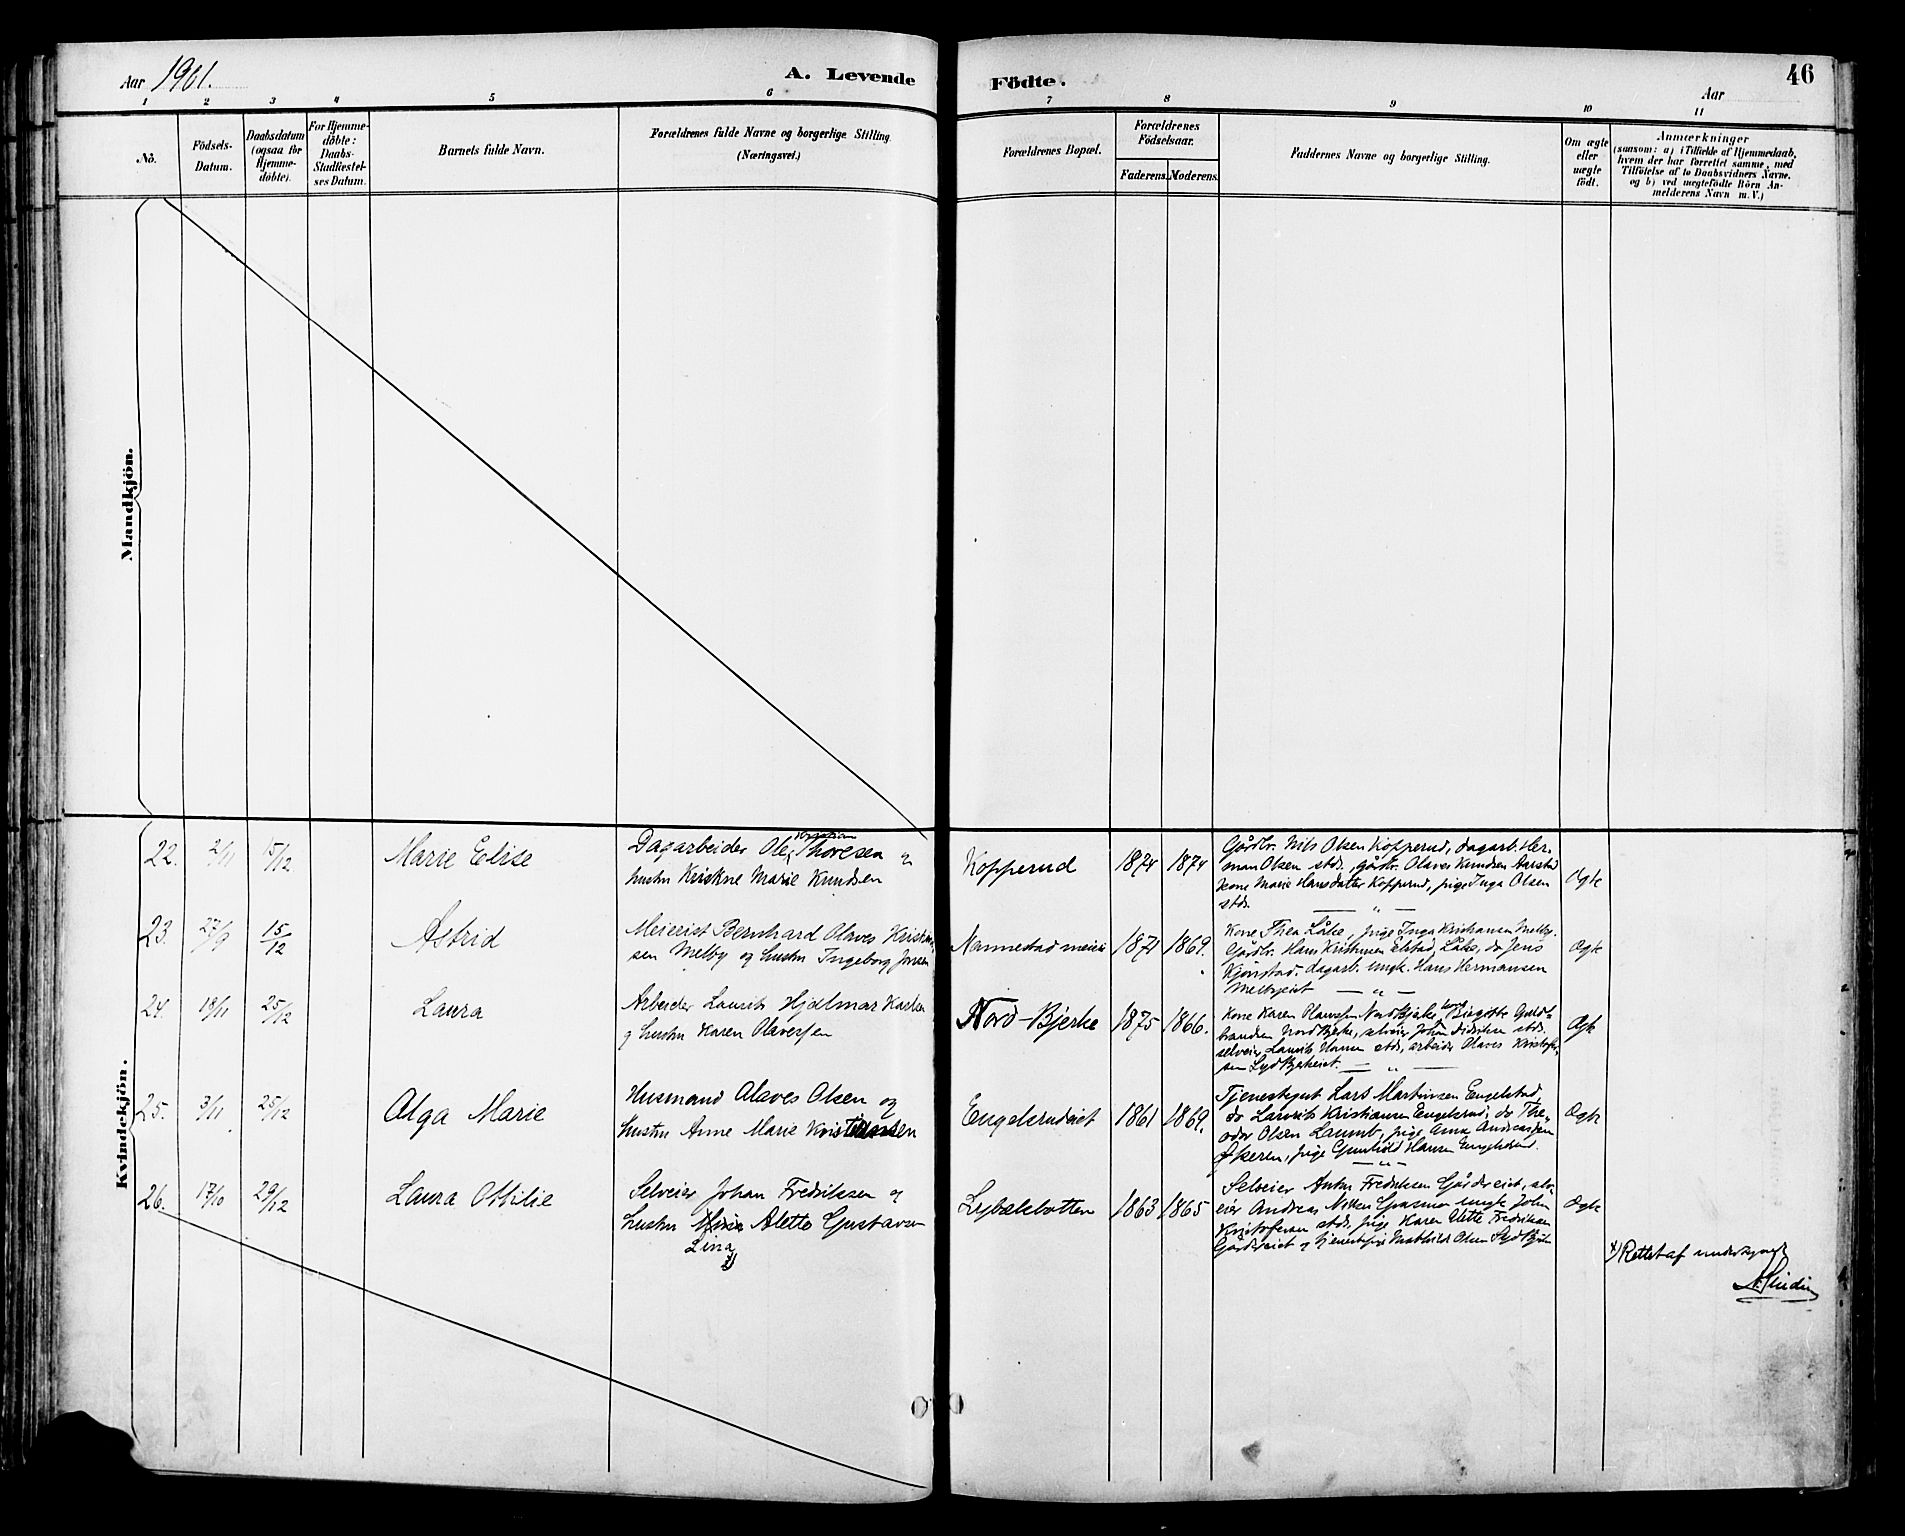 Aar 1901.
A. Levende
Födte.
46
Aar
1 2 3 4 5 6 7 8 9 10 11
No.
Födsels-
Datum.
Daabsdatum
(ogsaa for
Hjemme-
döbte).
For Hjemme-
döbte:
Daabs-
Stadfæstel-
ses Datum.
Barnets fulde Navn.
Forældrenes fulde Navne og borgerlige Stilling
(Næringsvei.)
Forældrenes Bopæl.
Forældrenes
Födselsaar.
Faderens. Moderens.
Faddernes Navne og borgerlige Stilling.
Om ægte
eller
uægte
födt.
Anmærkninger
(saasom: a) i Tilfælde af Hjemmedaab,
hvem der har forrettet samme, med
Tilföielse af to Daabsvidners Navne.
og b) ved uægtefödte Börn An-
melderens Navn m.V.)
Mandkjön.
Kvindekjön.
22. 2/11 15/12 Marie Elise
Dagarbeider Ole Thoresen og
hustru Kristine Marie Knudsen
Kopperud 1874 1874
Gårdbr. Nils Olsen Kopperud, dagarb. Her-
man Olsen stds., gårdbr. Olaves Knudsen Aarstad
kone Marie Hansdatter Kopperud, pige Inga Olsen
stds. — " —
Ægte
23. 27/9 15/12 Astrid
Meierist Bernhard Olaves Kristian-
sen Melby og hustru Ingeborg Jensen
Nannestad meieri 1871 1869.
Kone Thea Låke, pige Inga Kristiansen Melby.
Gårdbr. Hans Kristiansen Elstad, Låke, do Jens
Kjönstad. dagarb. ungk. Hans Hermansen
Melbyeiet — " —
Ægte
24. 18/11 25/12 Laura
Arbeider Laurits Hjalmar Karlsen
og hustru Karen Olavesen
Nord-Bjerke 1875 1866.
Kone Karen Olavesen Nordbjerke, kone Birgitte Guld-
brandsen Nordbjerke, selveier Johan Didriksen stds.
selveier Laurits Hansen stds, arbeider Olaves Kristofer-
sen Sydbjerkeeiet. — " —
Ægte
25. 3/11 25/12 Olga Marie
Husmand Olaves Olsen og
hustru Anne Marie Kristiansen
Engelsrudeiet 1861 1869.
Tjenestegut Lars Martinsen Engelstad,
do Laurits Kristiansen Engelsrud, do The-
odor Olsen Laumb, pige Anna Andreassen
Økeren, pige Gunhild Hansen Engelsrud.
— " —
Ægte
26. 17/10 29/12 Laura Ottilie
Selveier Johan Fredriksen og
hustru Alette Gustavsen
Lina
x)
1863 1865
Selveier Anton Fredriksen Gårdereiet, selv-
eier Andreas Nilsen ungk. Johan
Kristofersen stds, pige Karen Alette Fredriksen
Gårdereiet og tjenestepige Mathilde Olsen
Ægte
x) Rettet af undertegnede